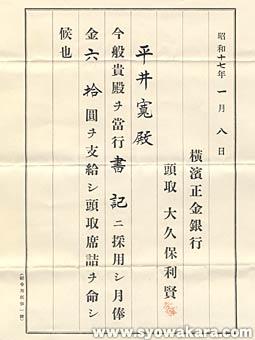 昭和十七年一月八日
横濱正金銀行
頭取 大久保利賢
平井寛殿
今般貴殿ヲ當行書記ニ採用シ月俸
金六拾圓ヲ支給シ頭取席詰ヲ命シ
候也
www.syowakara.com